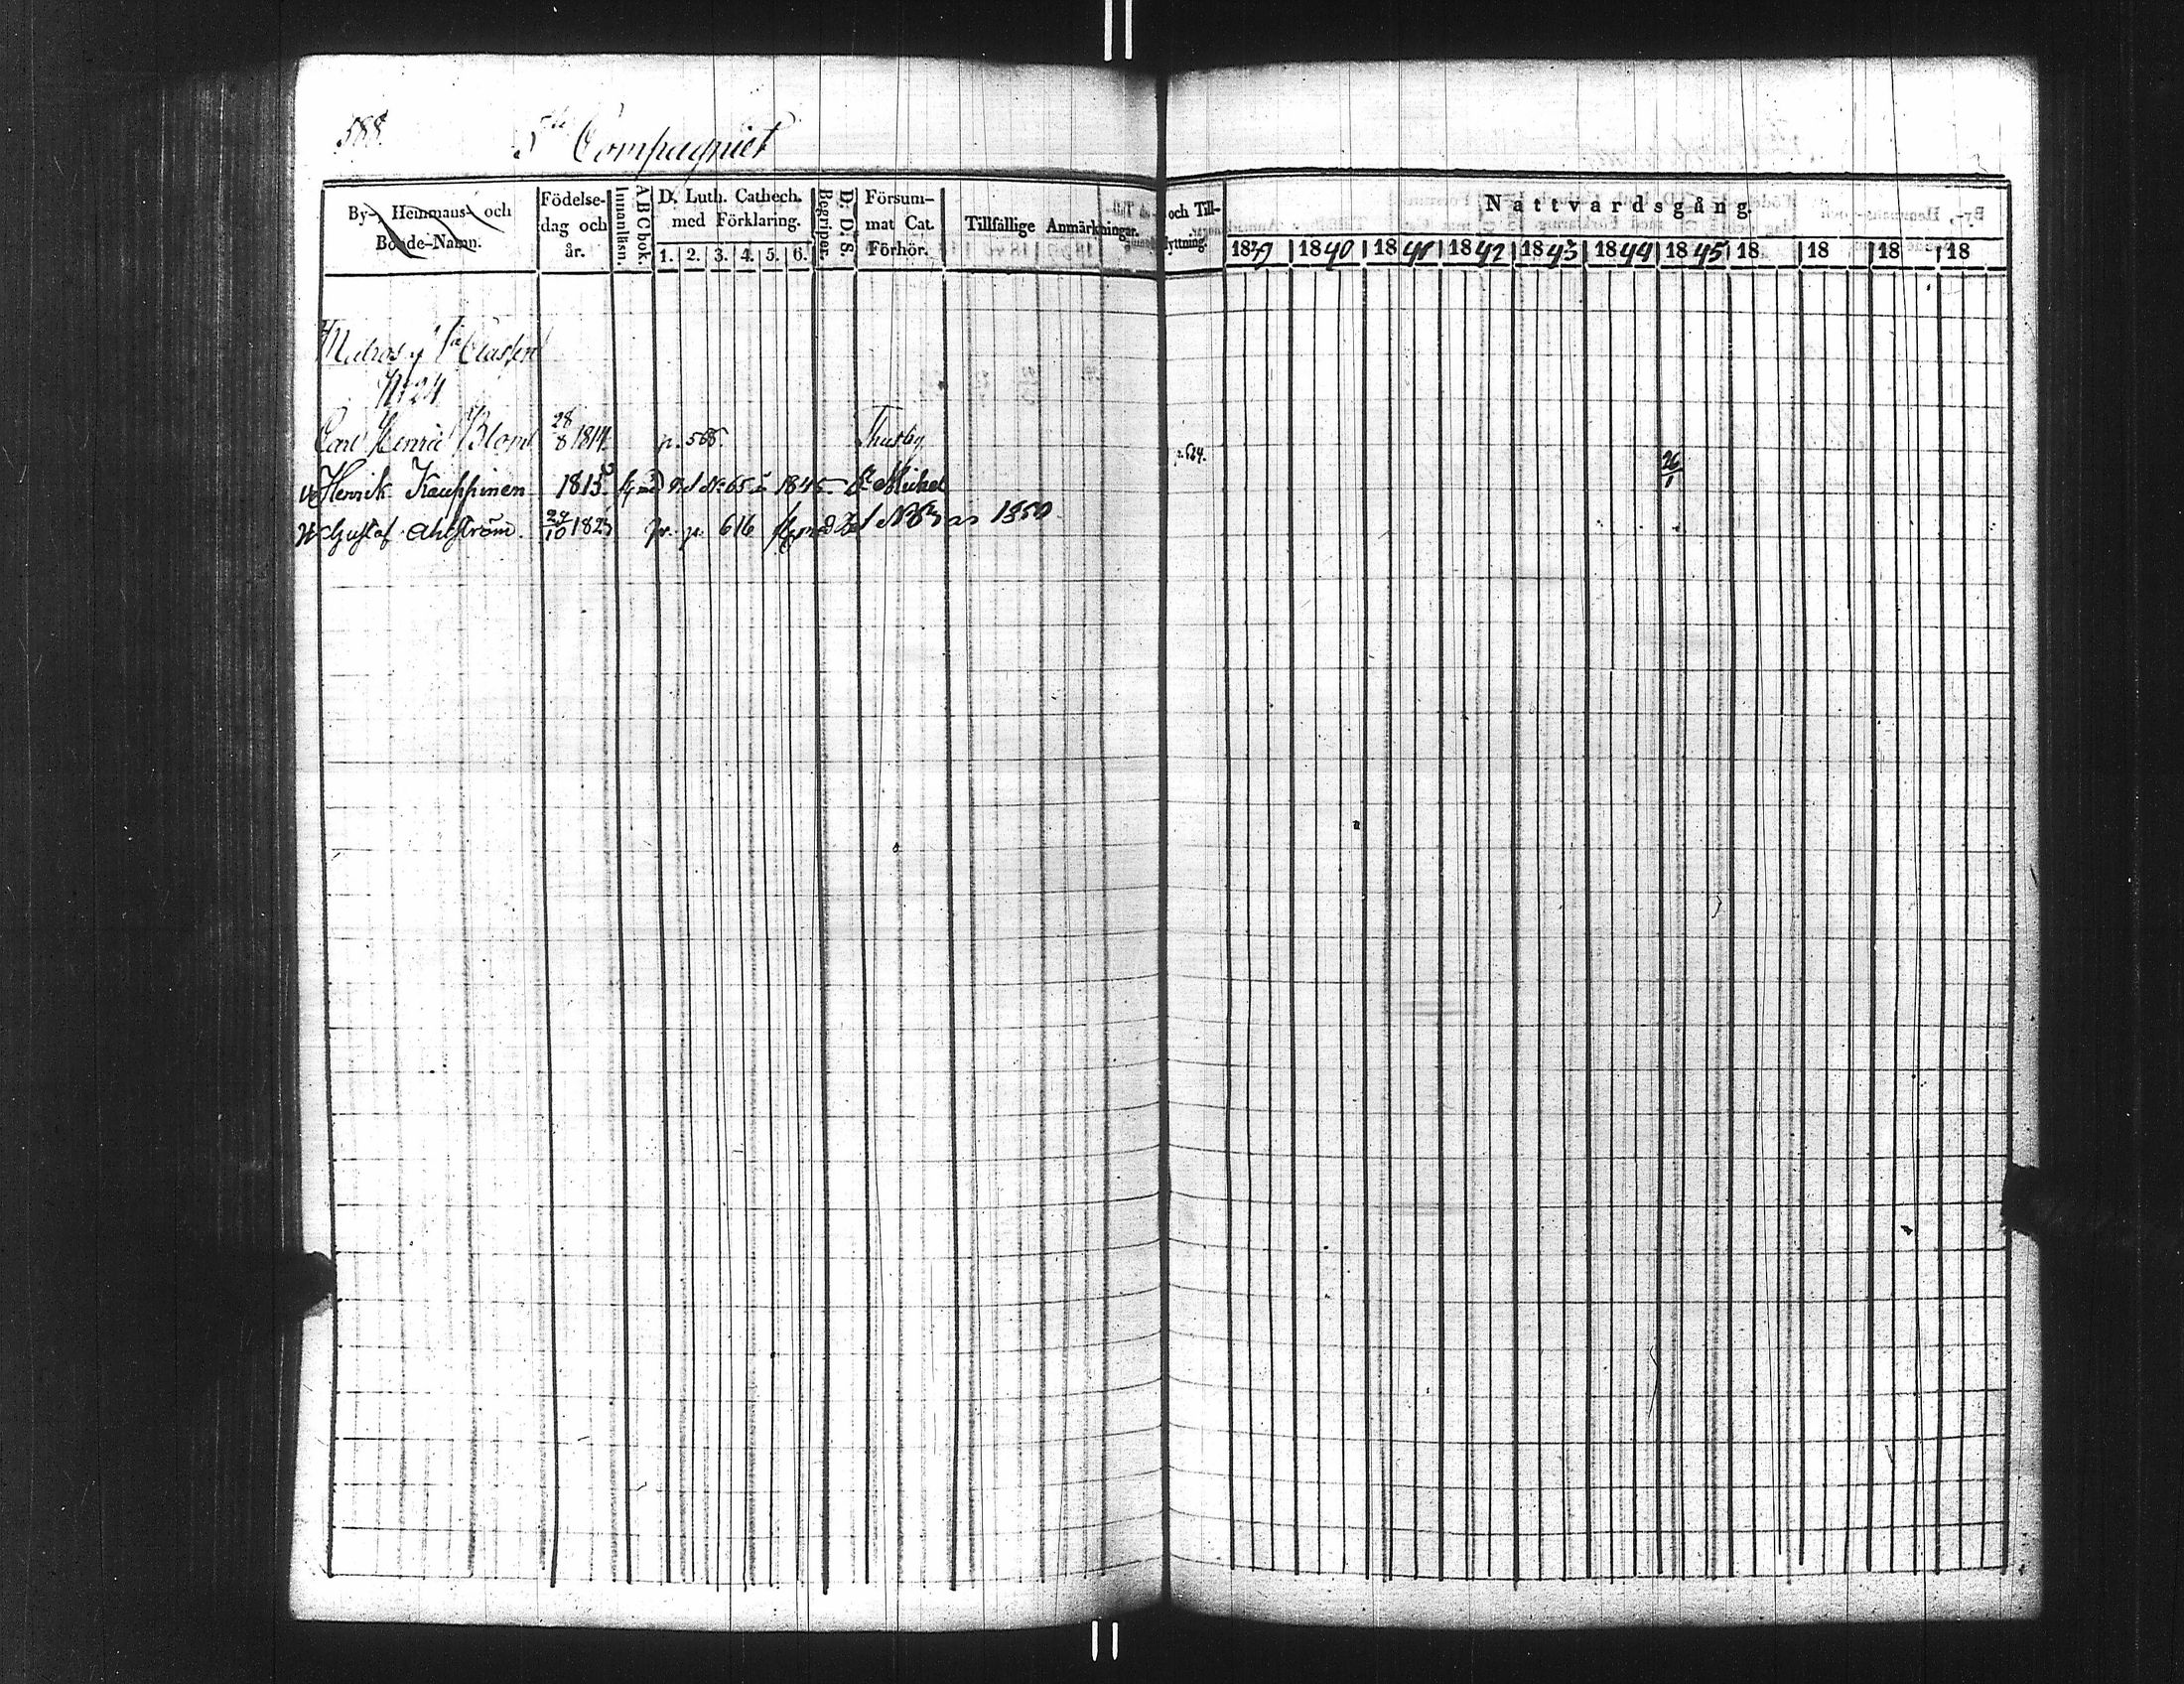 588.
5te Compagniet
By-, Hemmans- och Bonde-Namn.
Födelse-dag och år.
Innanläsn.
A B C bok.
D. Luth. Cathech. med Förklaring.
1. 2. 3. 4. 5. 6.
Begriper.
D. D. S.
Försum-mat Cat. Förhör.
Tillfällige Anmärkningar.
och Till-
flyttning.
Nattvardsgång.
1839 1840 1841 1842 1843 1844 1845 18 18 18 18
Matros af 1a Classen
N: 24
Carl Henric Blom 28/8 1814. p. 565. Thusby p. 624.
Henrik Kauppinen 1815 N: 65 1845 St Michel 26/1
Gustaf Ahlström. 24/10 1823 fr. p. 616 1850